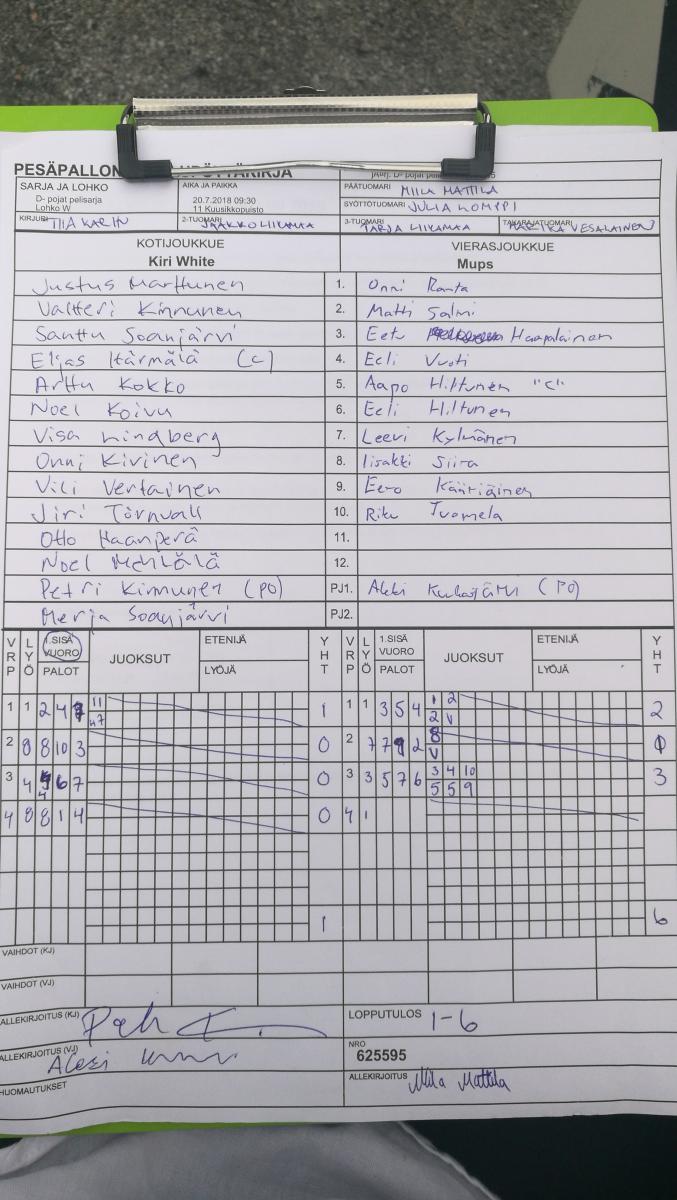 PESÄPALLON PÖYTÄKIRJA
SARJA JA LOHKO
D- pojat pelisarja
Lohko W
AIKA JA PAIKKA
20.7.2018 09:30
11 Kuusikkopuisto
PÄÄTUOMARI MIILA MATTILA
SYÖTTÖTUOMARI JULIA LOMPPI
KIRJURI TIIA KARLIN
2-TUOMARI JAAKKO LIIKAMAA
3-TUOMARI TARJA LIIKAMAA
TAKARAJATUOMARI MARIKA VESALAINEN
KOTIJOUKKUE
Kiri White
VIERASJOUKKUE
Mups
Justus Marttunen 1. Onni Ranta
Valtteri Kinnunen 2. Matti Salmi
Santtu Soanjärvi 3. Eetu Haapalainen
Elias Härmälä (C) 4. Eeli Vuoti
Arttu Kokko 5. Aapo Hiltunen "C"
Noel Koivu 6. Eeli Hiltunen
Visa Lindberg 7. Leevi Kylmänen
Onni Kivinen 8. Iisakki Siira
Vili Vertainen 9. Eero Kääriäinen
Jiri Törnvall 10. Riku Tuomela
Otto Haanperä 11.
Noel 12.
Petri Kinnunen (PO) PJ1. Aleksi (PO)
Merja Soanjärvi PJ2.
VRP LYÖ 1.SISÄ VUORO PALOT JUOKSUT ETENIJÄ LYÖJÄ YHT VRP LYÖ 1.SISÄ VUORO PALOT JUOKSUT ETENIJÄ LYÖJÄ YHT
1 1 2 4 11 1 1 1 3 5 4 1 2 2
47 2 V
2 8 8 10 3 0 2 7 7 9 2 8
V
3 4 6 7 0 3 3 5 7 6 3 4 10 3
5 5 9
4 8 8 1 4 0 4 1
1 6
VAIHDOT (KJ)
VAIHDOT (VJ)
ALLEKIRJOITUS (KJ)
LOPPUTULOS 1-6
ALLEKIRJOITUS (VJ) Aleksi
NRO
625595
HUOMAUTUKSET
ALLEKIRJOITUS Miila Mattila